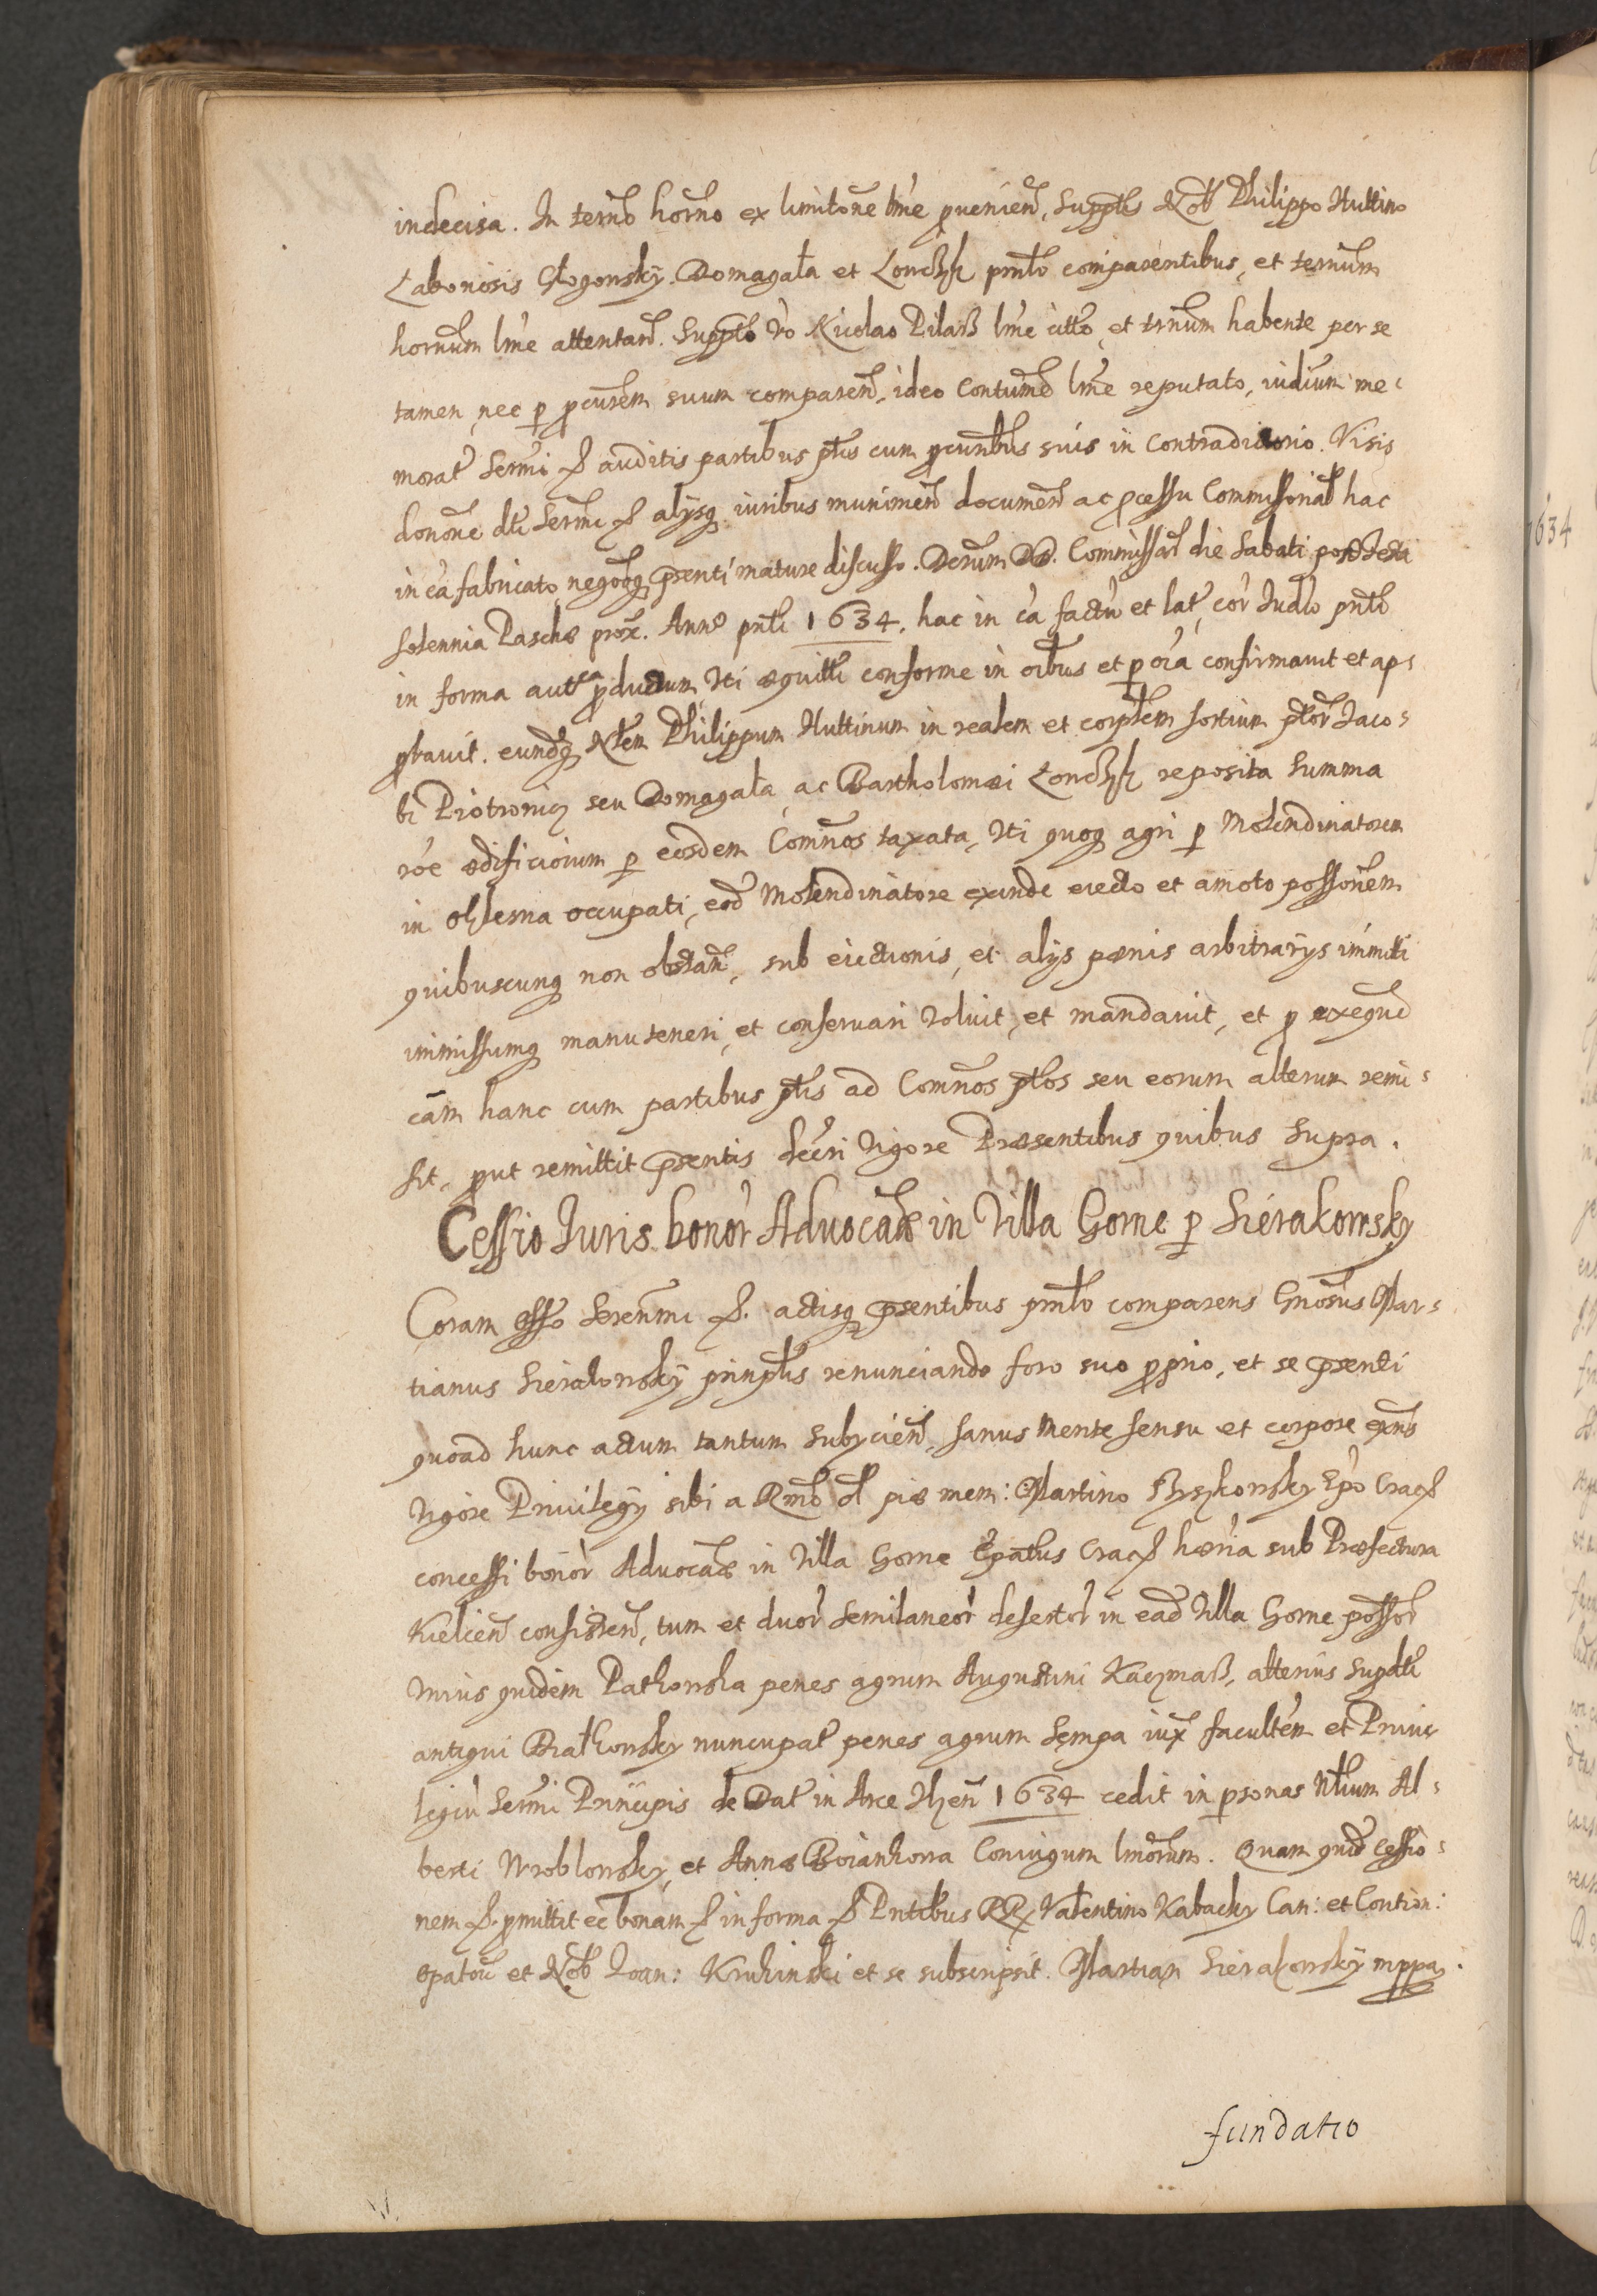 indecisa. In termo horno ex limitone lme pvenien. Supplis Nob Philippo Huttino
Labonosis Głogonsky. Domagała et Lonczyk pnlr comparentibus, et ternum
hornum lme attentan. Supplo vo Nicolao Pilarß lme citto, et trnum habente per se
tamen nec p pcurem suum comparen, ideo Contumc lme reputato, iudium me-
morat Sermi & auditis partibus ptis cum pcuribus suis in Contradictorio. Visis
donone dti Sermi & alysq iuribus munimen documen ac pcessu Commissonal hac
in ca fabricato, negotoq psenti mature discusso. Decrum DD. Commissar die Sabati post festa
Solennia Pasche prox. Anno pnti 1634, hac in ca factu et lat, cor Judio pnti
in forma autca pductum, Uti æquitti conforme in oibus et p oia confirmavit et ap-
pbavit. eundq Nlem Philippum Huttinum in realem et corplem Sortium ptor Jaco-
bi Piotrowicz seu Domagała, ac Bartholomæi Łonczyk reposita Summa
roe ædificiorum p eosdem Comnos taxata, Uti quoq agri p Molendinatorem
in Olszewna occupati, eod Molendinatore exinde eiecto et amoto possonem
quibuscunq non obstan, sub eiectionis, et alys pænis arbitrarys immitti
immissumq manuteneri, et conservari Voluit, et mandavit, et p exequd
cam hanc cum partibus ptis ad Comnos ptos seu eorum alterum remi-
sit, put remittit psentis decri Vigore Præsentibus quibus Supra.
Cessio Juris bonor Advocatæ in Villa Gorne p Sierakowsky
Coram offo Serenmi &. actisq psentibus pnlr comparens Gnosus Mar-
tianus Sierakowsky prinplis renunciando foro suo pprio, et se psenti
quoad hunc actum tantum Subycien, Sanus Mente Sensu et corpore exns
Vigore Privilegy sibi a Rmo ol piæ mem: Martino Szyszkowsky Epo Crac&
concessi bonor Advocatæ in Villa Gorne Epatus Crac& hæria sub Præfectura
Kielcien consisten, tum et duor Semilaneor desertor in ead Villa Gorne possor
Unius quidem Patkowska penes agrum Augustini Kaczmarß, alterius Supdti
antiqui Bratkowsky nuncupat penes agrum Sempa iux facultem et Privi-
legiu Sermi Principis de Dat in Arce Uhen 1634 cedit in psonas Nlium Al-
berti Wroblowsky, et Annæ Boiankowa Coniugum lmorum. Quam quid Cessio-
nem & pmittit ee bonam & in forma & Pntibus RR Valentino Kabacky Can: et Contion:
Opatov et Nob Joan: Krukinski et se subscripsit. Martian Sierakowsky mppa.
fundatio
1634